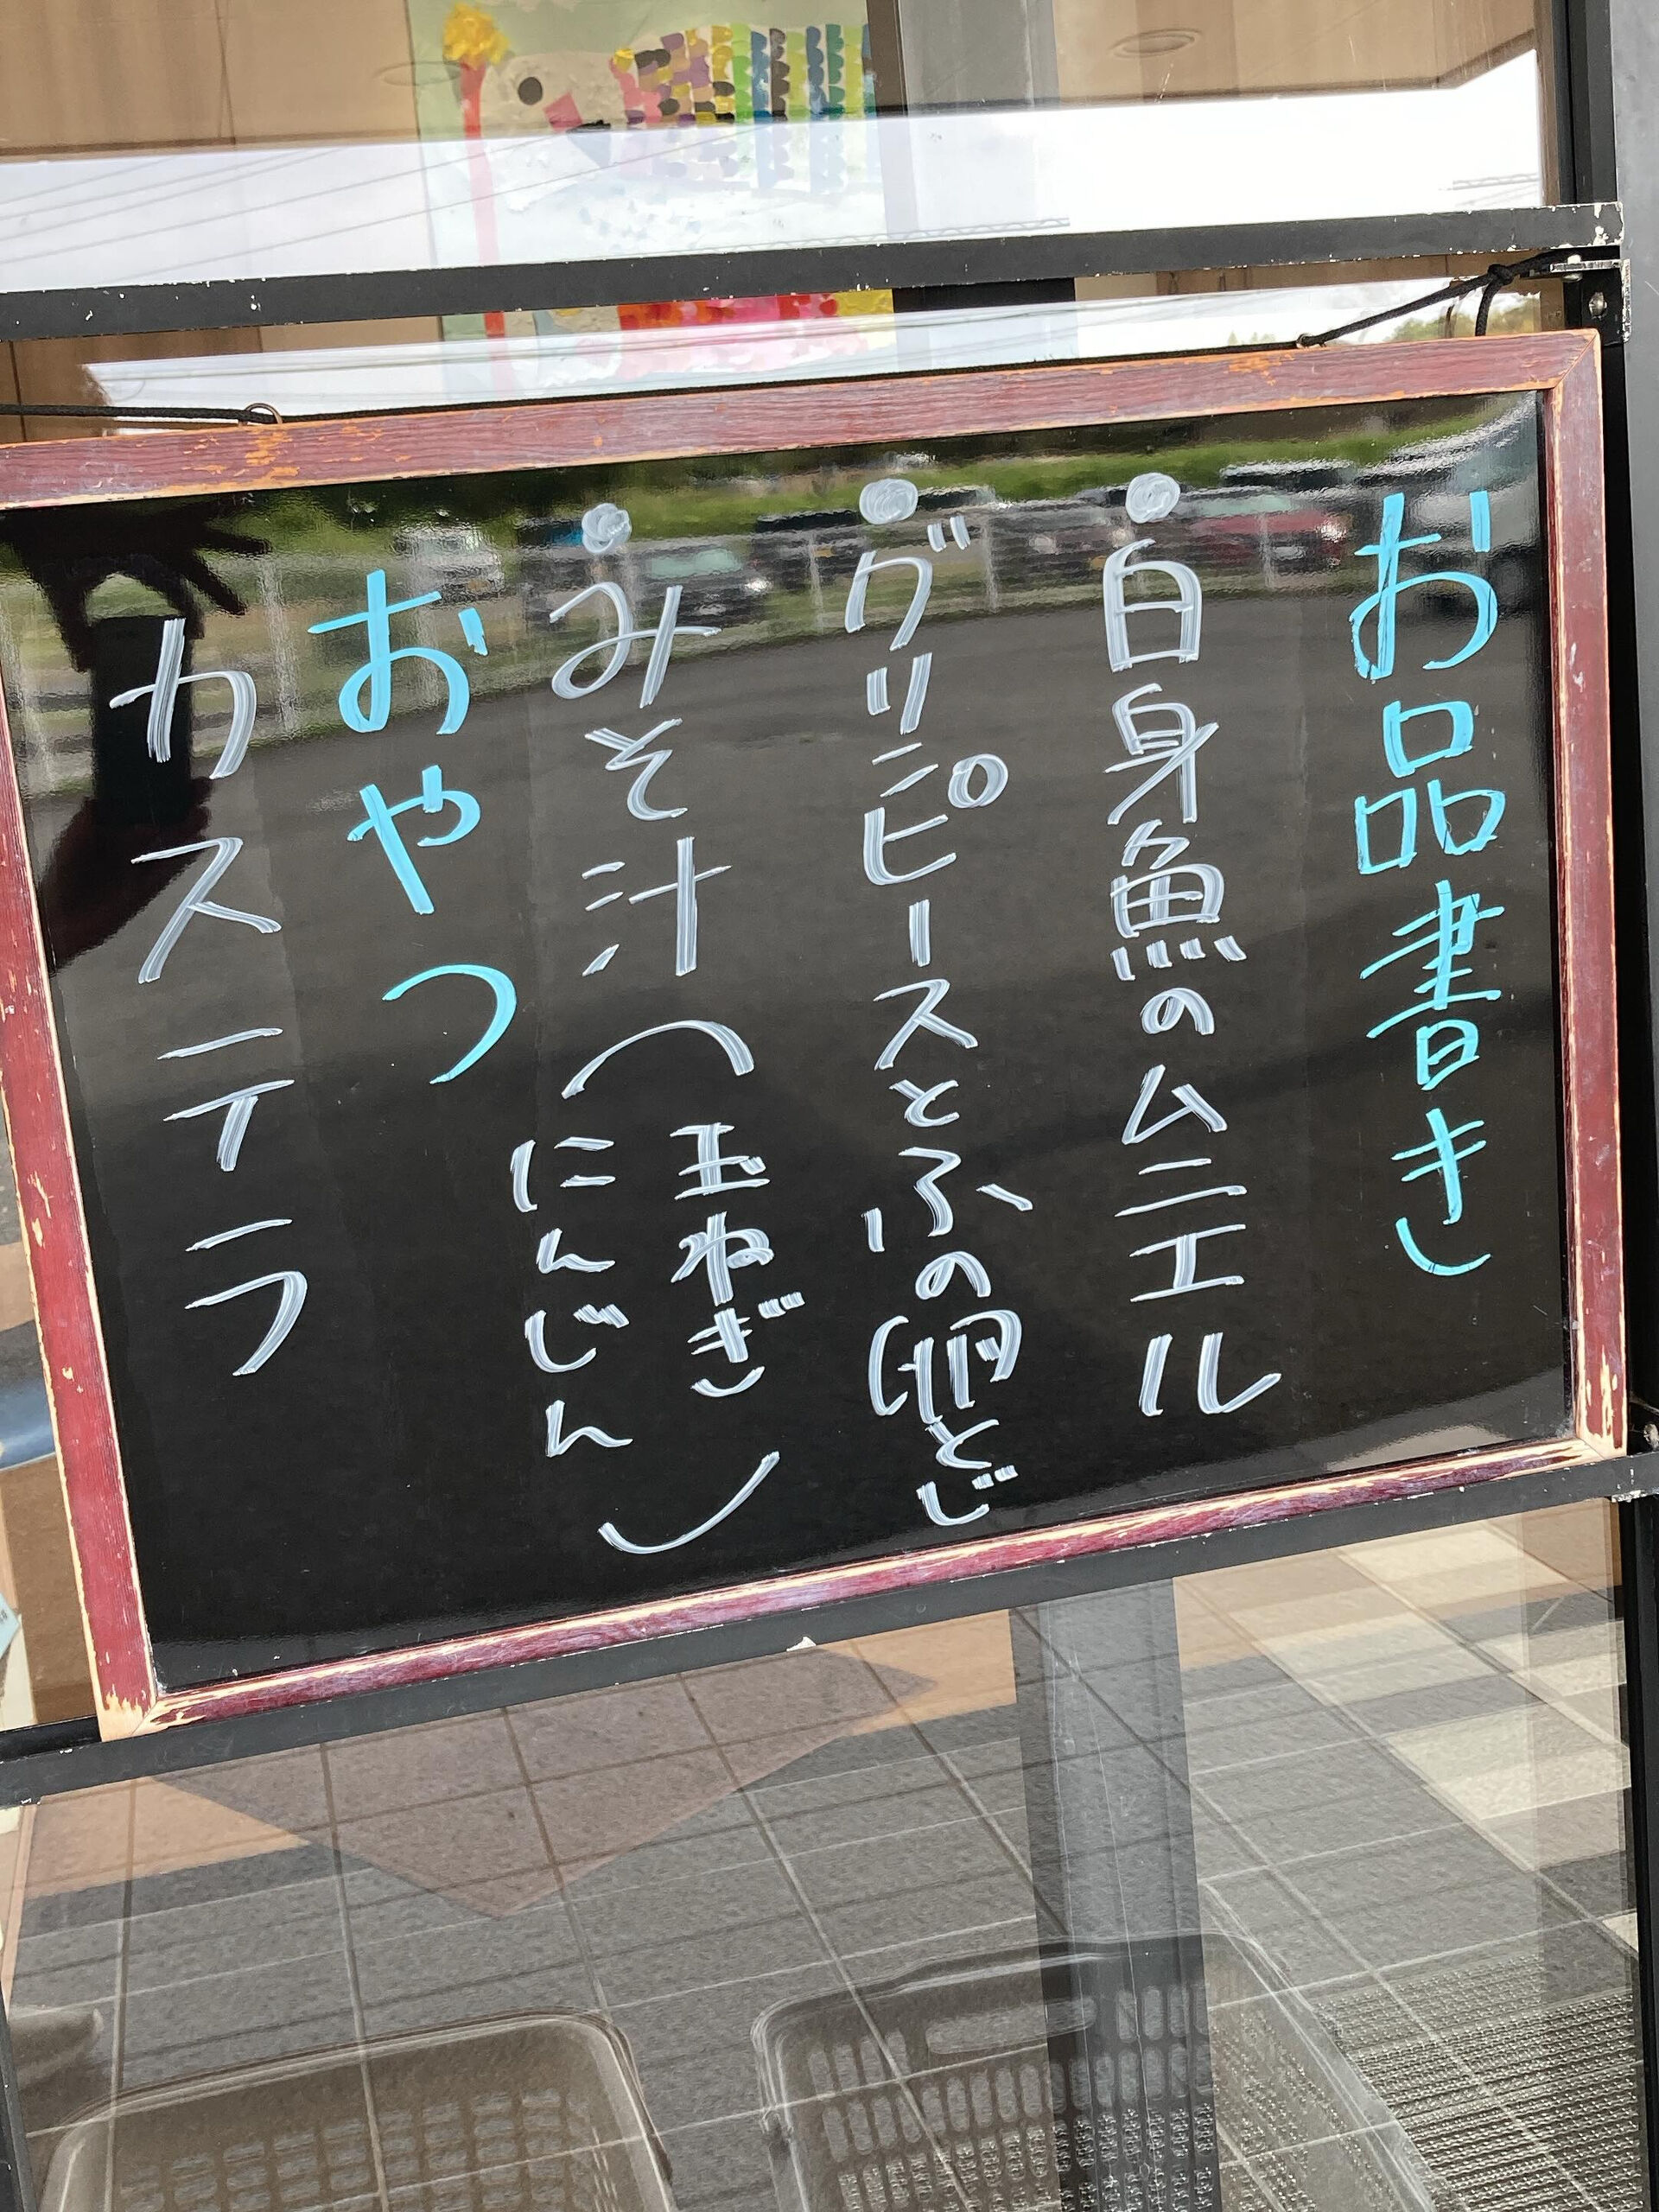 お品書き
・白身魚のムニエル
・グリンピースとふの卵とじ
・みそ汁(玉ねぎ
にんじん)
おやつ
カステラ